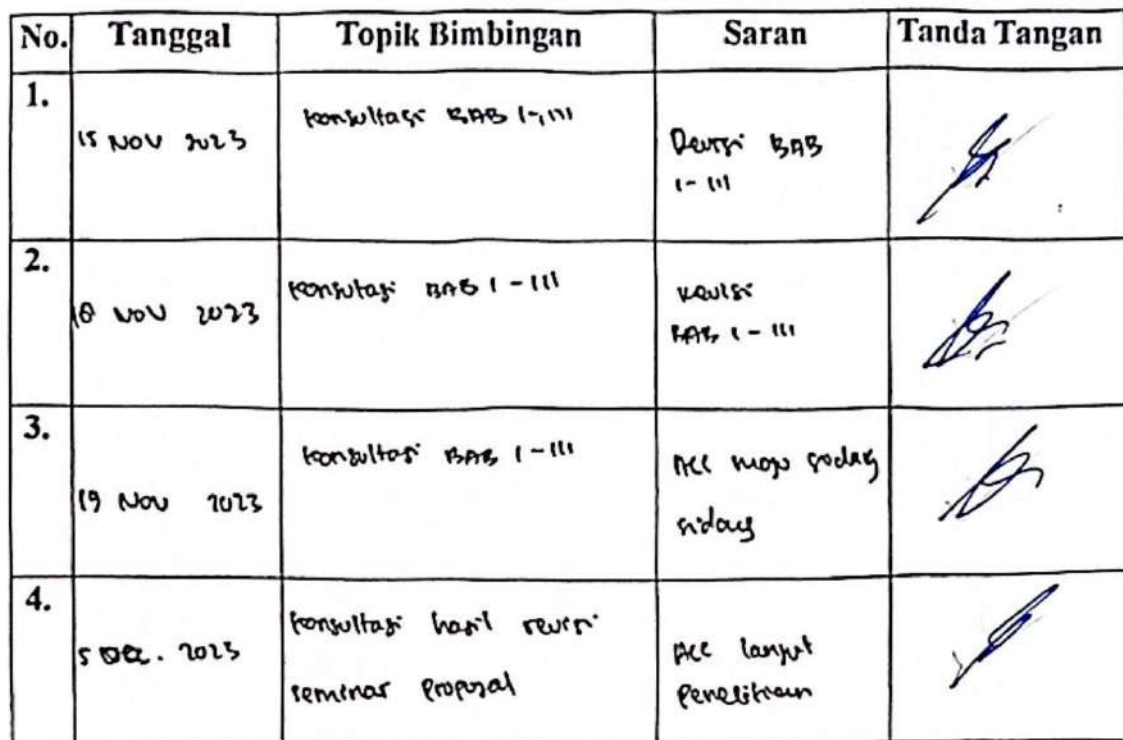 No. Tanggal Topik Bimbingan Saran Tanda Tangan
1.
15 NOV 2023
konsultasi BAB I-III
Revisi BAB
I-III
2.
18 NOV 2023
konsultasi BAB I-III
Revisi
BAB I-III
3.
19 Nov 2023
konsultasi BAB I-III
ACC maju
sidang
4.
5 DEC. 2023
konsultasi hasil revisi
seminar proposal
ACC lanjut
penelitian